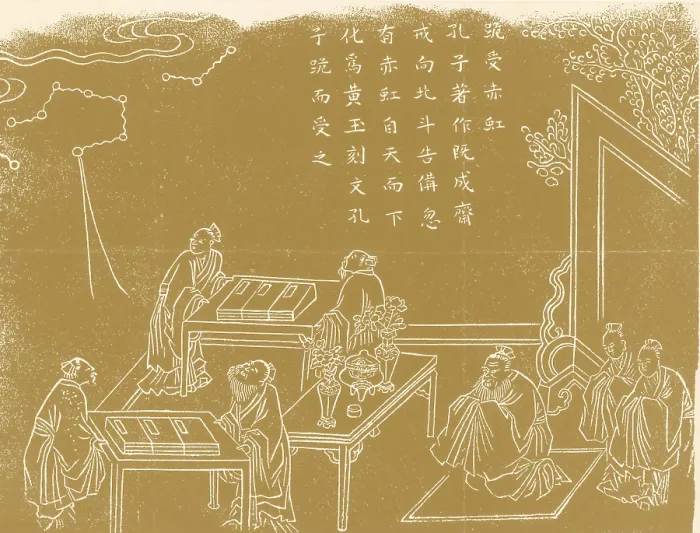 跪受赤虹
孔子著作既成齋
戒向北斗告備忽
有赤虹自天而下
化爲黄玉刻文孔
子跪而受之